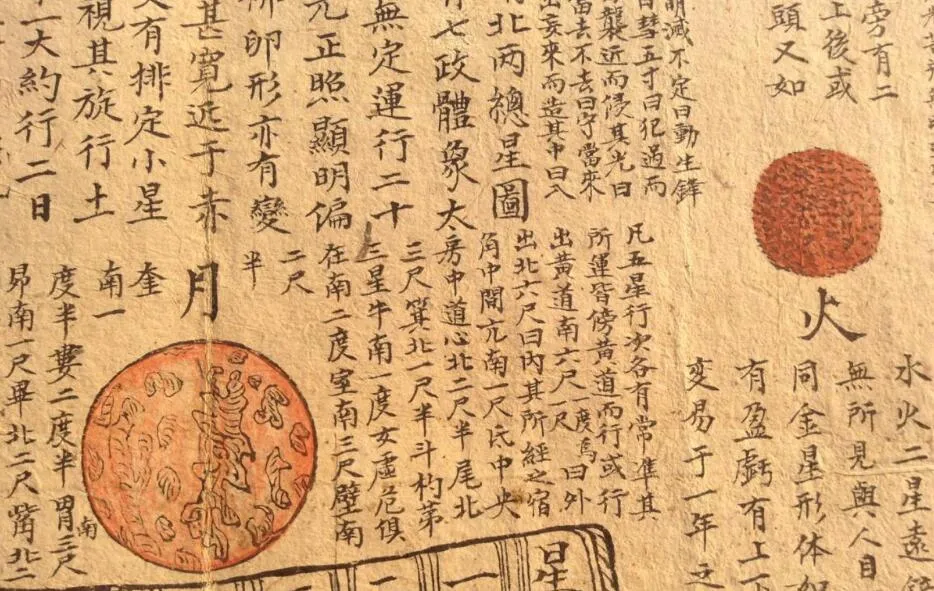 旁有二
上後或
頭又如
火
水火二星遠
無所見與人目
同金星形体如
有盈虧有上下
變易于一年之
減不定曰動生鋒
彗五寸曰犯過而
襲近而侵其光曰
當去不去曰守當來
出妄來而造其中曰入
北两總星圖
七政體象太
無定運行二十
正照顯明偏
卵形亦有變
甚寬近于赤
又有排定小星
視其旋行土
一大約行二日
凡五星行次各有常準其
所運皆傍黃道而行或行
出黃道南六尺一度焉曰外
出北六尺曰内其所經之宿
角中間亢南一尺氐中央
房中道心北二尺半尾北
三尺箕北一尺半斗杓第
三星牛南一度女虛危俱
在南二度室南三尺壁南
二尺
半
月
奎
南一
度半婁二度半胃南三尺
昴南一尺畢北二尺觜北二
星
一